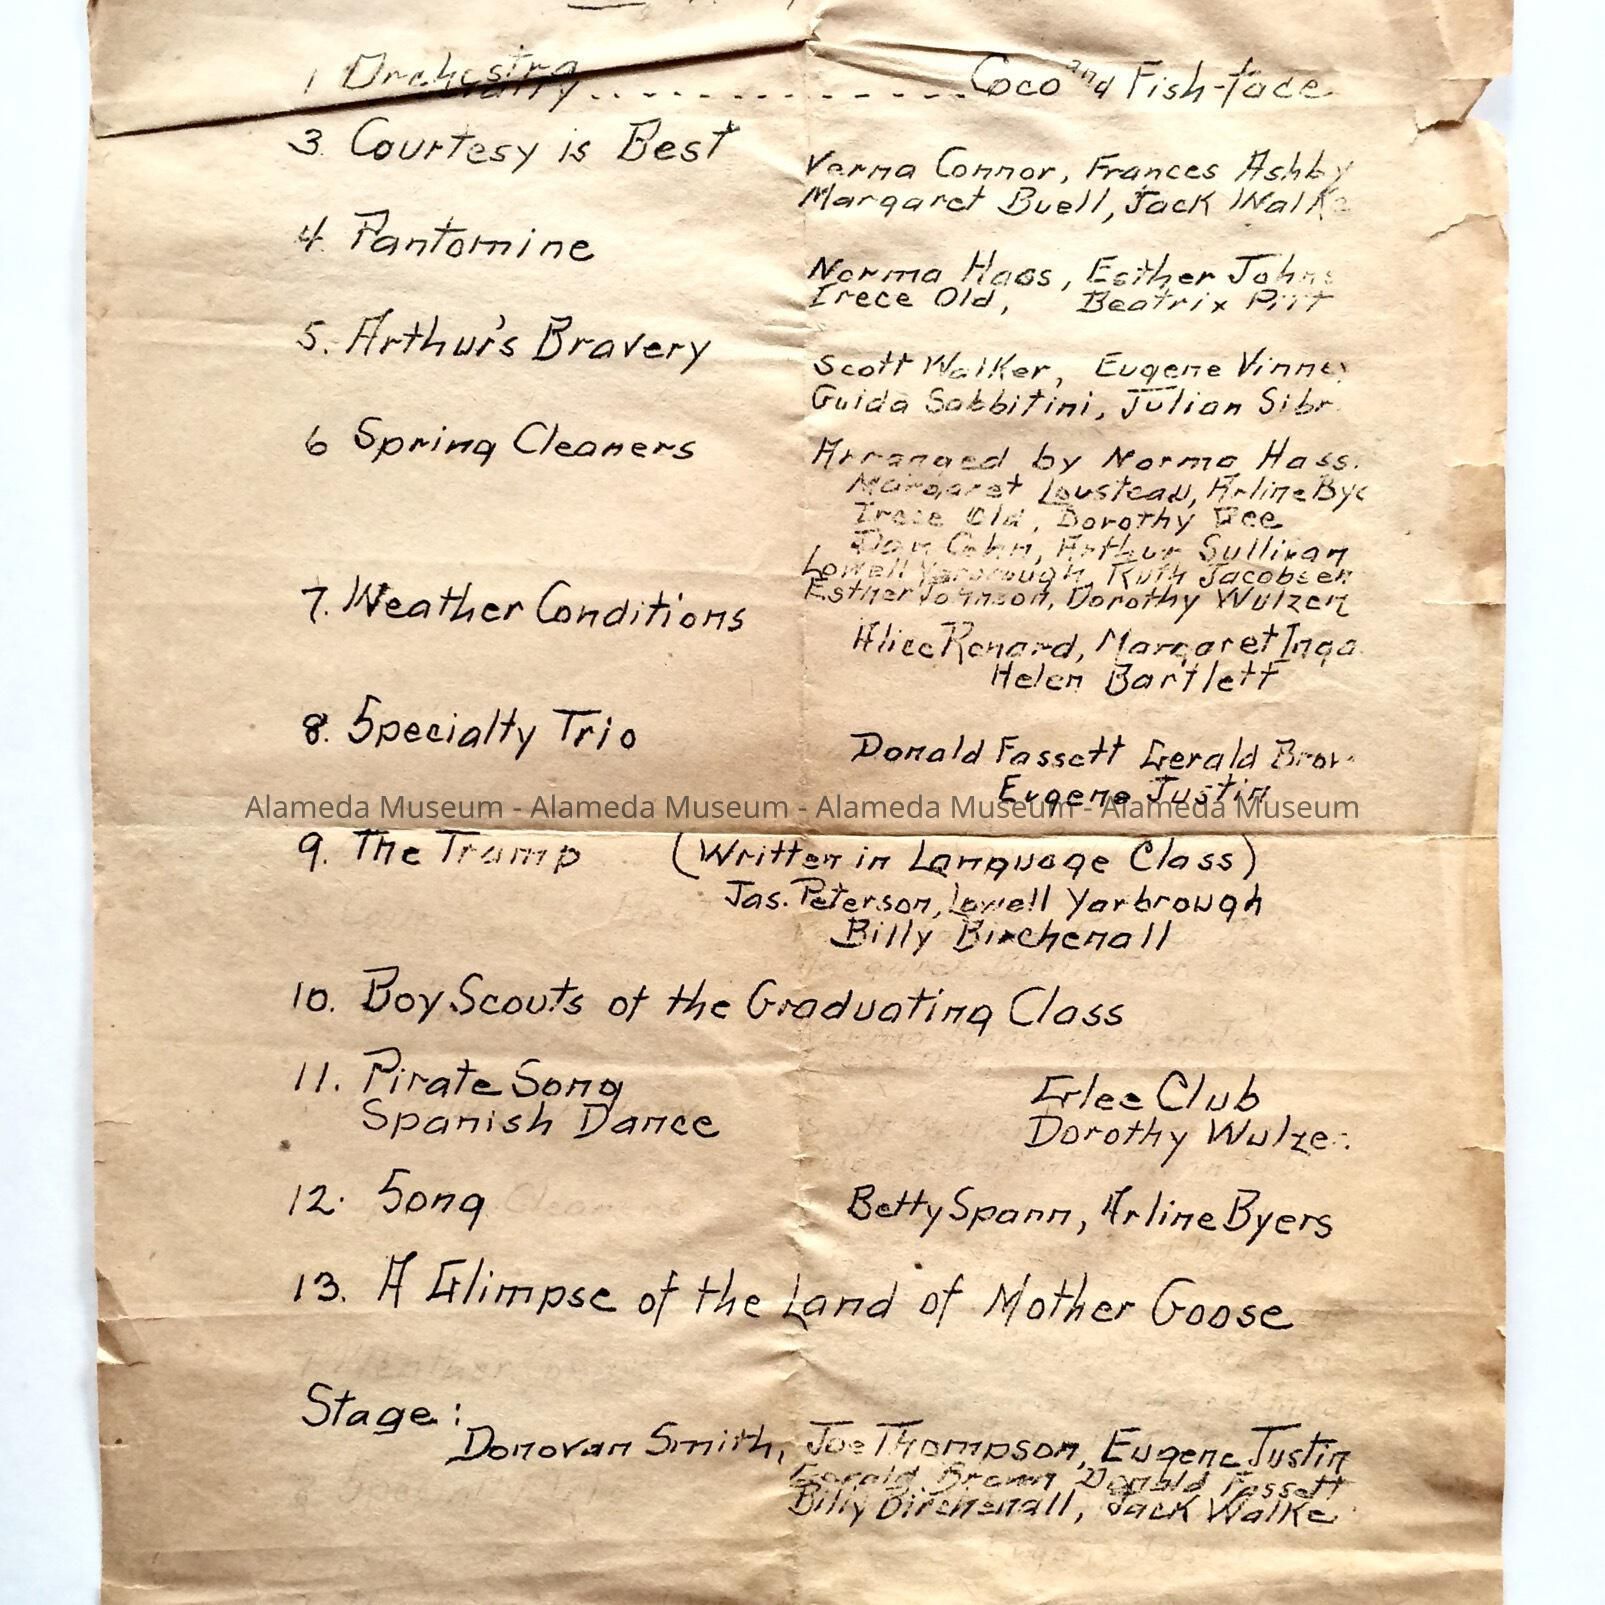 1 Orchestra
Coco and Fish-face
3. Courtesy is Best
Verna Connor, Frances Ashby
Margaret Buell, Jack Walke
4. Pantomine
Norma Haas, Esther Johns
Irece Old, Beatrix Pitt
5. Arthur's Bravery
Scott Walker, Eugene Vinne
Guida Sabbitini, Julian Sibr
6 Spring Cleaners
Arranged by Norma Hass.
Margaret Lousteau, Arline Bye
Irece Old, Dorothy Dee
Dan Cohn, Arthur Sullivan
Lowell Yarbrough, Ruth Jacobsen
Esther Johnson, Dorothy Wulzen
7. Weather Conditions
Alice Renard, Margaret Inga
Helen Bartlett
8. Specialty Trio
Donald Fassett Gerald Brow
Eugene Justin
Alameda Museum - Alameda Museum - Alameda Museum - Alameda Museum
9. The Tramp (Written in Language Class)
Jas. Peterson, Lowell Yarbrough
Billy Birchenall
10. Boy Scouts of the Graduating Class
11. Pirate Song Glee Club
Spanish Dance Dorothy Wulze
12. Song Betty Spann, Arline Byers
13. A Glimpse of the Land of Mother Goose
Stage:
Donovan Smith, Joe Thompson, Eugene Justin
Gerald Brown Donald Fassett
Billy Birchenall, Jack Walke